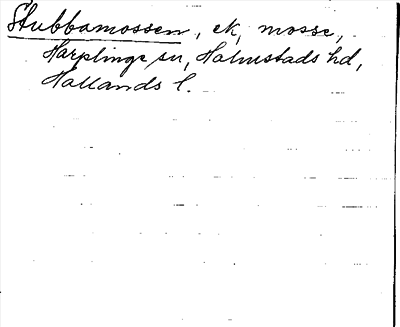 Stubbamossen, ek, mosse,
Harplinge sn, Halmstads hd,
Hallands l.